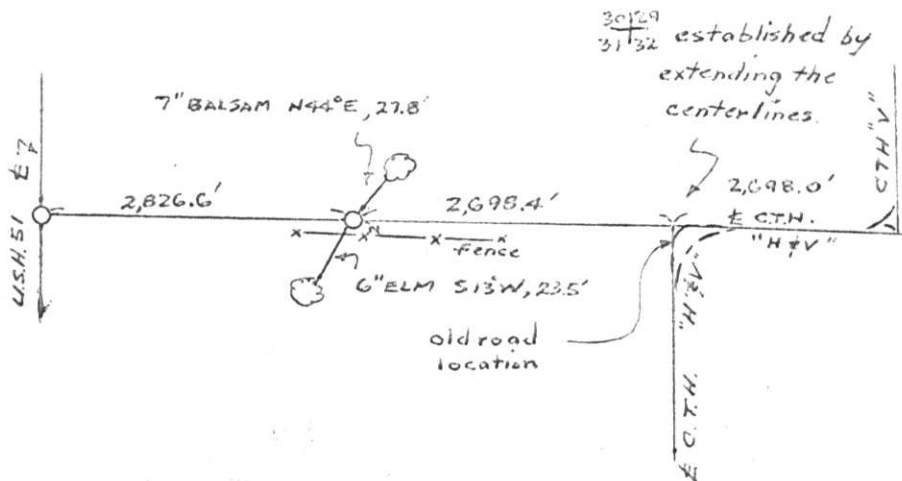 30|29
31|32 established by
extending the
centerlines.
7" BALSAM N44°E, 27.8'
2,826.6'
2,698.4'
2,698.0'
℄ C.T.H.
"H & V"
fence
6" ELM S13°W, 23.5'
old road
location
U.S.H. 51 ℄
C.T.H. "V"
℄ C.T.H. "H & V"